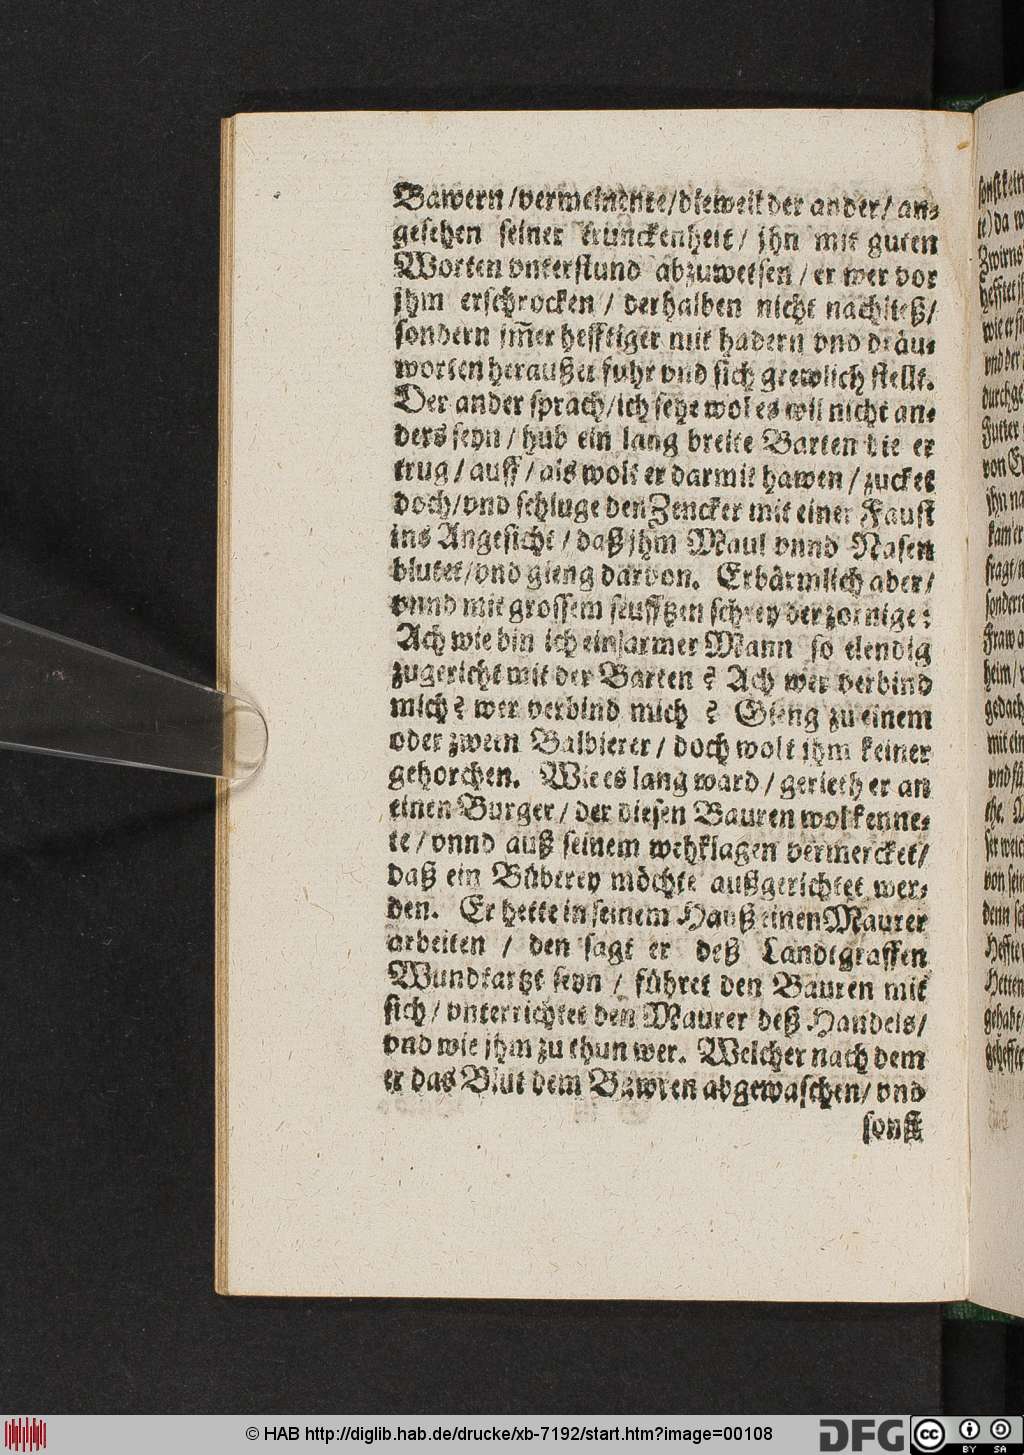 Bawern / vermeinente / dieweil der ander / an⸗
gesehen seiner trunckenheit / jhn mit guten
Worten vnterstund abzuweisen / er wer vor
jhm erschrocken / derhalben nicht nachließ /
sondern jm̃er hefftiger mit hadern vnd dräu⸗
worten heraußer fuhr vnd sich grewlich stellt.
Der ander sprach / ich sehe wol es wil nicht an⸗
ders seyn / hub ein lang breite Barten die er
trug / auff / als wolt er darmit hawen / zucket
doch / vnd schluge den Zencker mit einer Faust
ins Angesicht / daß jhm Maul vnnd Nasen
blutet / vnd gieng darvon. Erbärmlich aber /
vnnd mit grossem seufftzen schrey der zornige:
Ach wie bin ich ein armer Mann so elendig
zugericht mit der Barten? Ach wer verbind
mich? wer verbind mich? Gieng zu einem
oder zween Balbierer / doch wolt jhm keiner
gehorchen. Wie es lang ward / gerieth er an
einen Burger / der diesen Bauren wol kenne⸗
te / vnnd auß seinem wehklagen vermercket /
daß ein Büberey möchte außgerichtet wer⸗
den. Er hette in seinem Hauß einen Maurer
arbeiten / den sagt er deß Landtgraffen
Wundtartzt seyn / führet den Bauren mit
sich / vnterrichtet den Maurer deß Handels /
vnd wie jhm zu thun wer. Welcher nach dem
er das Blut dem Bawren abgewaschen / vnd
sonst
sonst kein
te) da
Zwirns
hefftet
wie er
vnd der
durchge
Futter
von
jhn na
kam er
fragt
sondern
Fraw
heim /
gedach
mit ein
vnd
ehe.
ser welch
von sein
denn
Heffte
Hetten
gehabt
geheffte
© HAB http://diglib.hab.de/drucke/xb-7192/start.htm?image=00108
DFG
cc BY SA